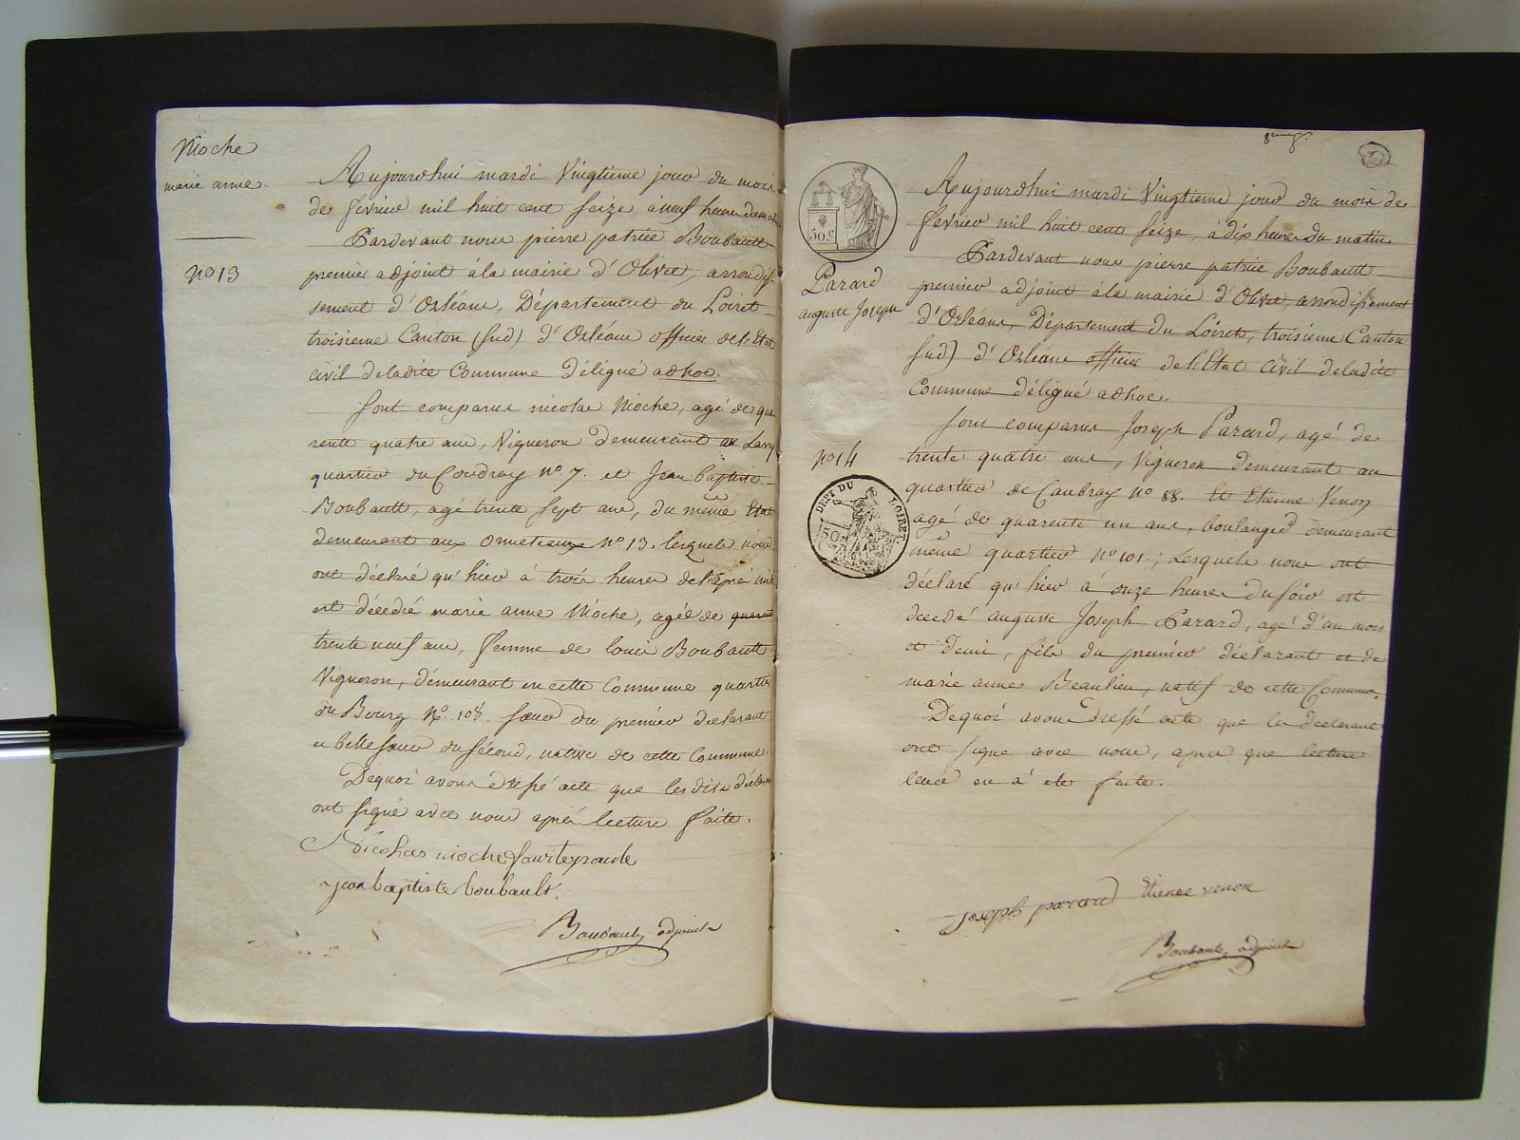 Mioche
marie anne.
Nº 13
Aujourdhui mardi Vingtieme jour du mois
de fevrier mil huit cent seize, à neuf heures du
Pardevant nous pierre patrice Boubault
premier adjoint à la mairie d'Olivet, arrondis-
sement d'Orléans, Département du Loiret
troisieme Canton (sud) d'Orléans officier de l'Etat
civil deladite Commune déligué adhoc.
sont comparus nicolas Mioche, agé de qua
rente quatre ans, Vigneron demeurant au
quartier du Coudray nº 7. et Jean baptiste
Boubault, agé trente sept ans, du même Etat
demeurant aux ormeteaux nº 13. lesquels nous
ont déclaré qu'hier à trois heures de l'après midi
est décédée marie anne Mioche, agée de
trente neuf ans, femme de louis Boubault
Vigneron, demeurant en cette Commune quartier
du Bourg Nº. 108. soeur du premier declarant
et belle soeur du second, native de cette Commune.
Dequoi avons dressé acte que les dits
ont signé avec nous après lecture faite.
Nicolas mioche
jean baptiste boubault.
Boubault, adjoint
50 c
Parard
auguste Joseph
Nº 14
DEPT DU LOIRET.
50
Aujourdhui mardi Vingtieme jour du mois de
fevrier mil huit cent seize, à dix heures du matin
Pardevant nous pierre patrice Boubault
premier adjoint à la mairie d'Olivet, arrondissement
d'Orléans, Département du Loiret, troisieme Canton
sud) d'Orléans officier de l'Etat Civil deladite
Commune déligué adhoc.
sont comparus Joseph Parard, agé de
trente quatre ans, Vigneron demeurant au
quartier de Caubray nº 88. et Etienne Venon
agé de quarente un ans, boulanger demeurant
même quartier nº 101; lesquels nous ont
déclaré qu'hier à onze heures du soir est
decedé auguste Joseph Parard, agé d'un mois
et demi, fils du premier déclarant et de
marie anne Beaulieu, natif de cette Commune.
Dequoi avons dressé acte que les declarants
ont signé avec nous, apres que lecture
leur en à eté faite.
joseph parard Etienne venon
Boubault, adjoint